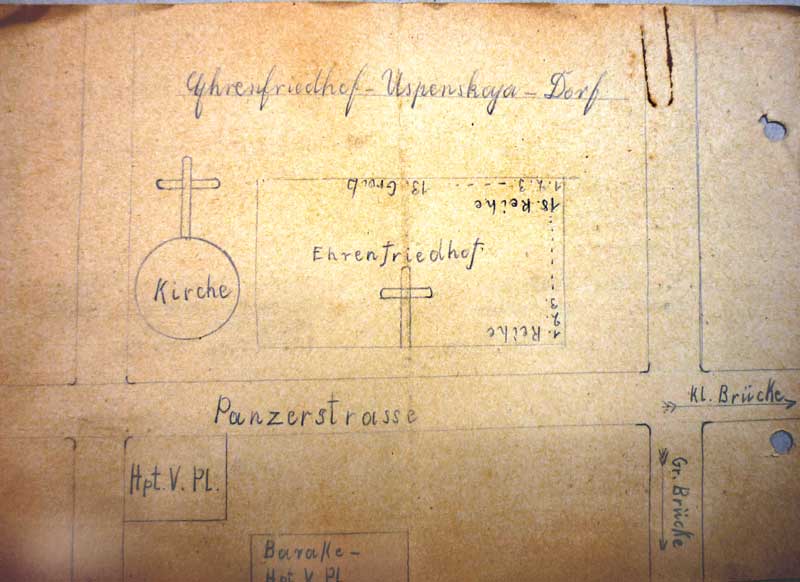 Ehrenfriedhof - Uspenskaja - Dorf
1. 2. 3. - - - - - - 13. Grab
18. Reihe
Ehrenfriedhof
Kirche
3.
2.
1. Reihe
Kl. Brücke
Panzerstrasse
Hpt. V. Pl.
Gr. Brücke
Barake-
Hpt. V. Pl.